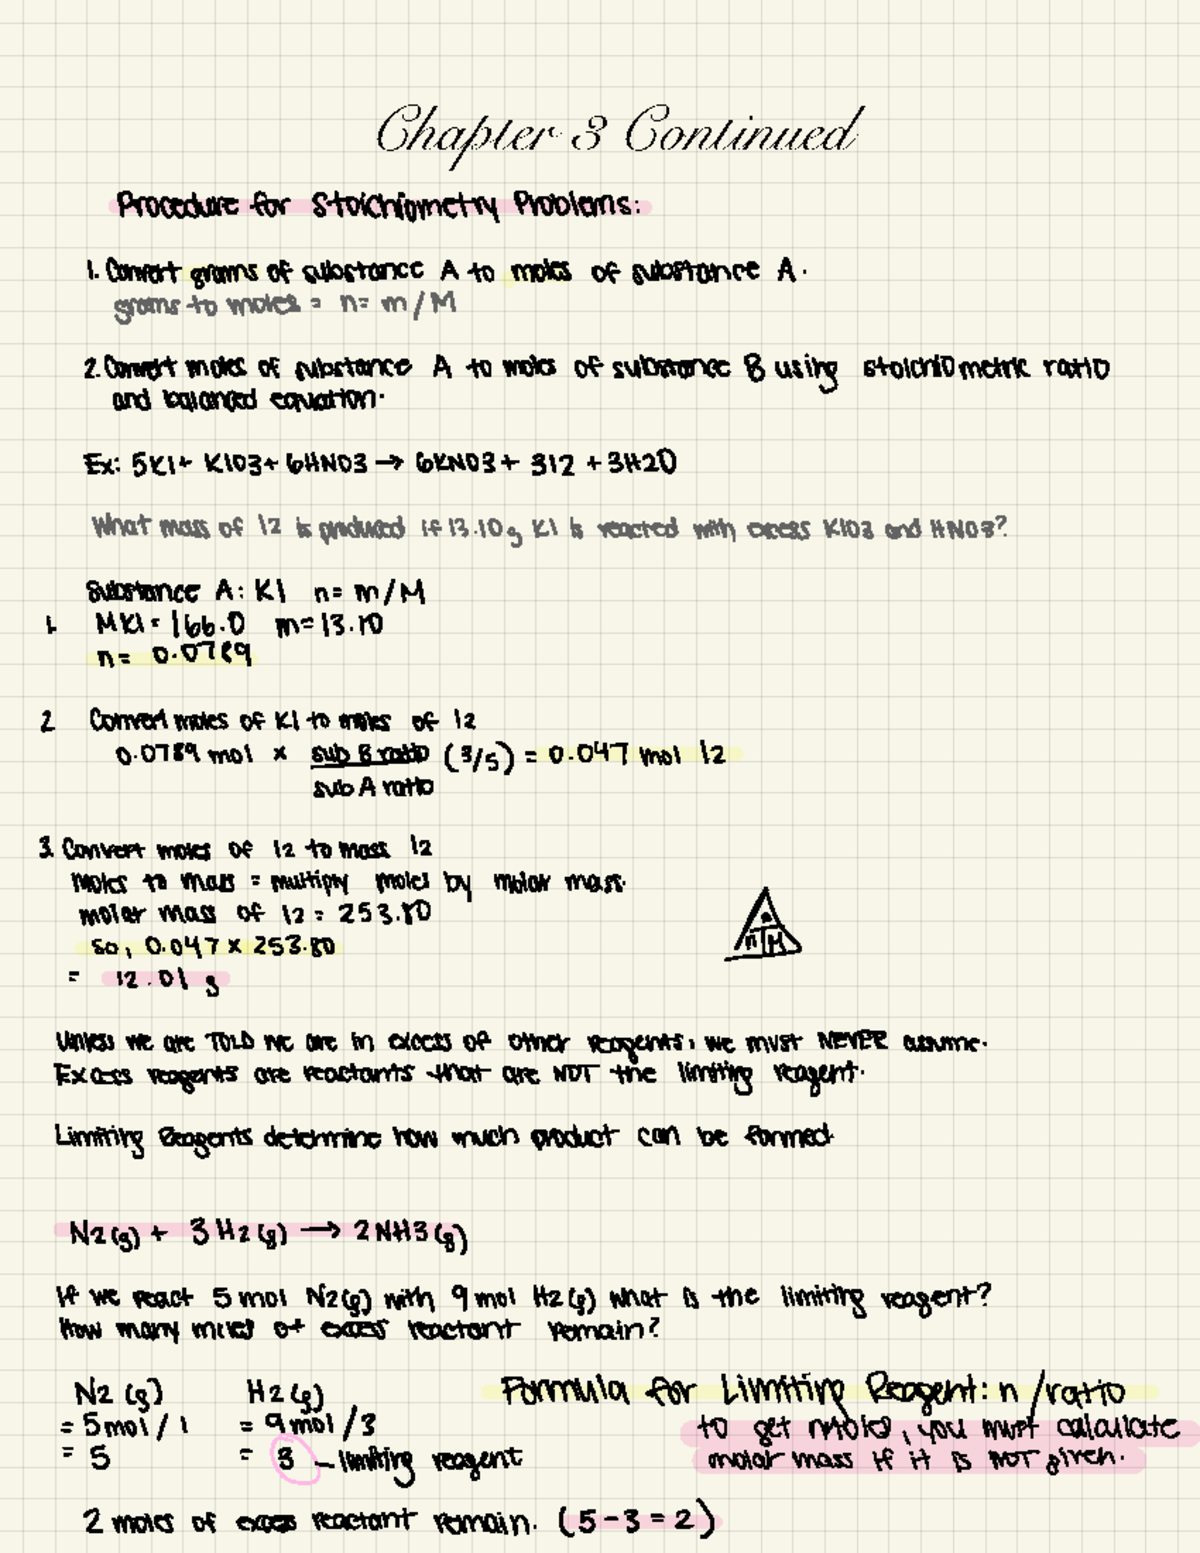 Chapter 3 Continued
Procedure for Stoichiometry Problems:
1. Convert grams of substance A to moles of substance A.
grams to moles = n= m/M
2. Convert moles of substance A to moles of substance B using stoichiometric ratio
and balanced equation.
Ex: 5KI+ KIO3+ 6HNO3 → 6KNO3+ 3I2 +3H2O
What mass of I2 is produced if 13.10g KI is reacted with excess KIO3 and HNO3?
Substance A: KI n= m/M
1. MKI= 166.0 m=13.10
n= 0.0789
2 Convert moles of KI to moles of I2
0.0789 mol x sub B ratio (3/5) = 0.047 mol I2
sub A ratio
3. Convert moles of I2 to mass I2
moles to mass = multiply moles by molar mass.
molar mass of I2 = 253.80
so, 0.047 x 253.80
= 12.01 g
n M
Unless we are TOLD we are in excess of other reagents, we must NEVER assume.
Excess reagents are reactants that are NOT the limiting reagent.
Limiting Reagents determine how much product can be formed.
N2(g) + 3H2(g) → 2NH3(g)
If we react 5 mol N2(g) with 9 mol H2(g) what is the limiting reagent?
How many moles of excess reactant remain?
N2 (g) H2(g) Formula for Limiting Reagent: n/ratio
= 5mol/1 = 9mol/3 to get moles, you must calculate
= 5 = 3 – limiting reagent molar mass if it is NOT given.
2 moles of excess reactant remain. (5-3=2)